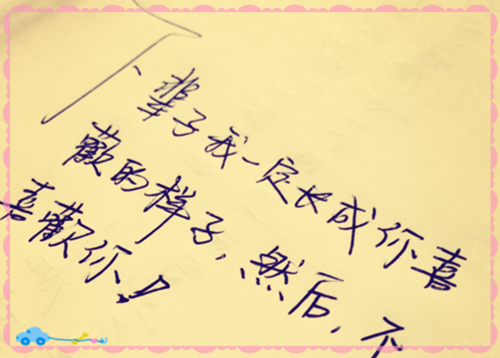 下辈子我一定长成你喜
歡的样子,然后,不
喜歡你!